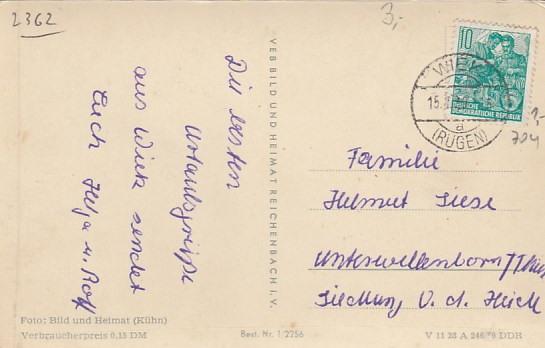 2362
3,-
Die besten
Urlaubsgrüße
aus Wiek sendet
Euch Helga u. Rolf
VEB BILD UND HEIMAT REICHENBACH i. V.
10
DEUTSCHE
DEMOKRATISCHE REPUBLIK
WIEK
15.
a
(RÜGEN)
1,-
704
Familie
Helmut Liese
Unterwellenborn / Thür
Siedlung V. d. Heide
Foto: Bild und Heimat (Kühn)
Verbraucherpreis 0,15 DM
Best. Nr. 1/2256
V 11 28 A 246/ DDR